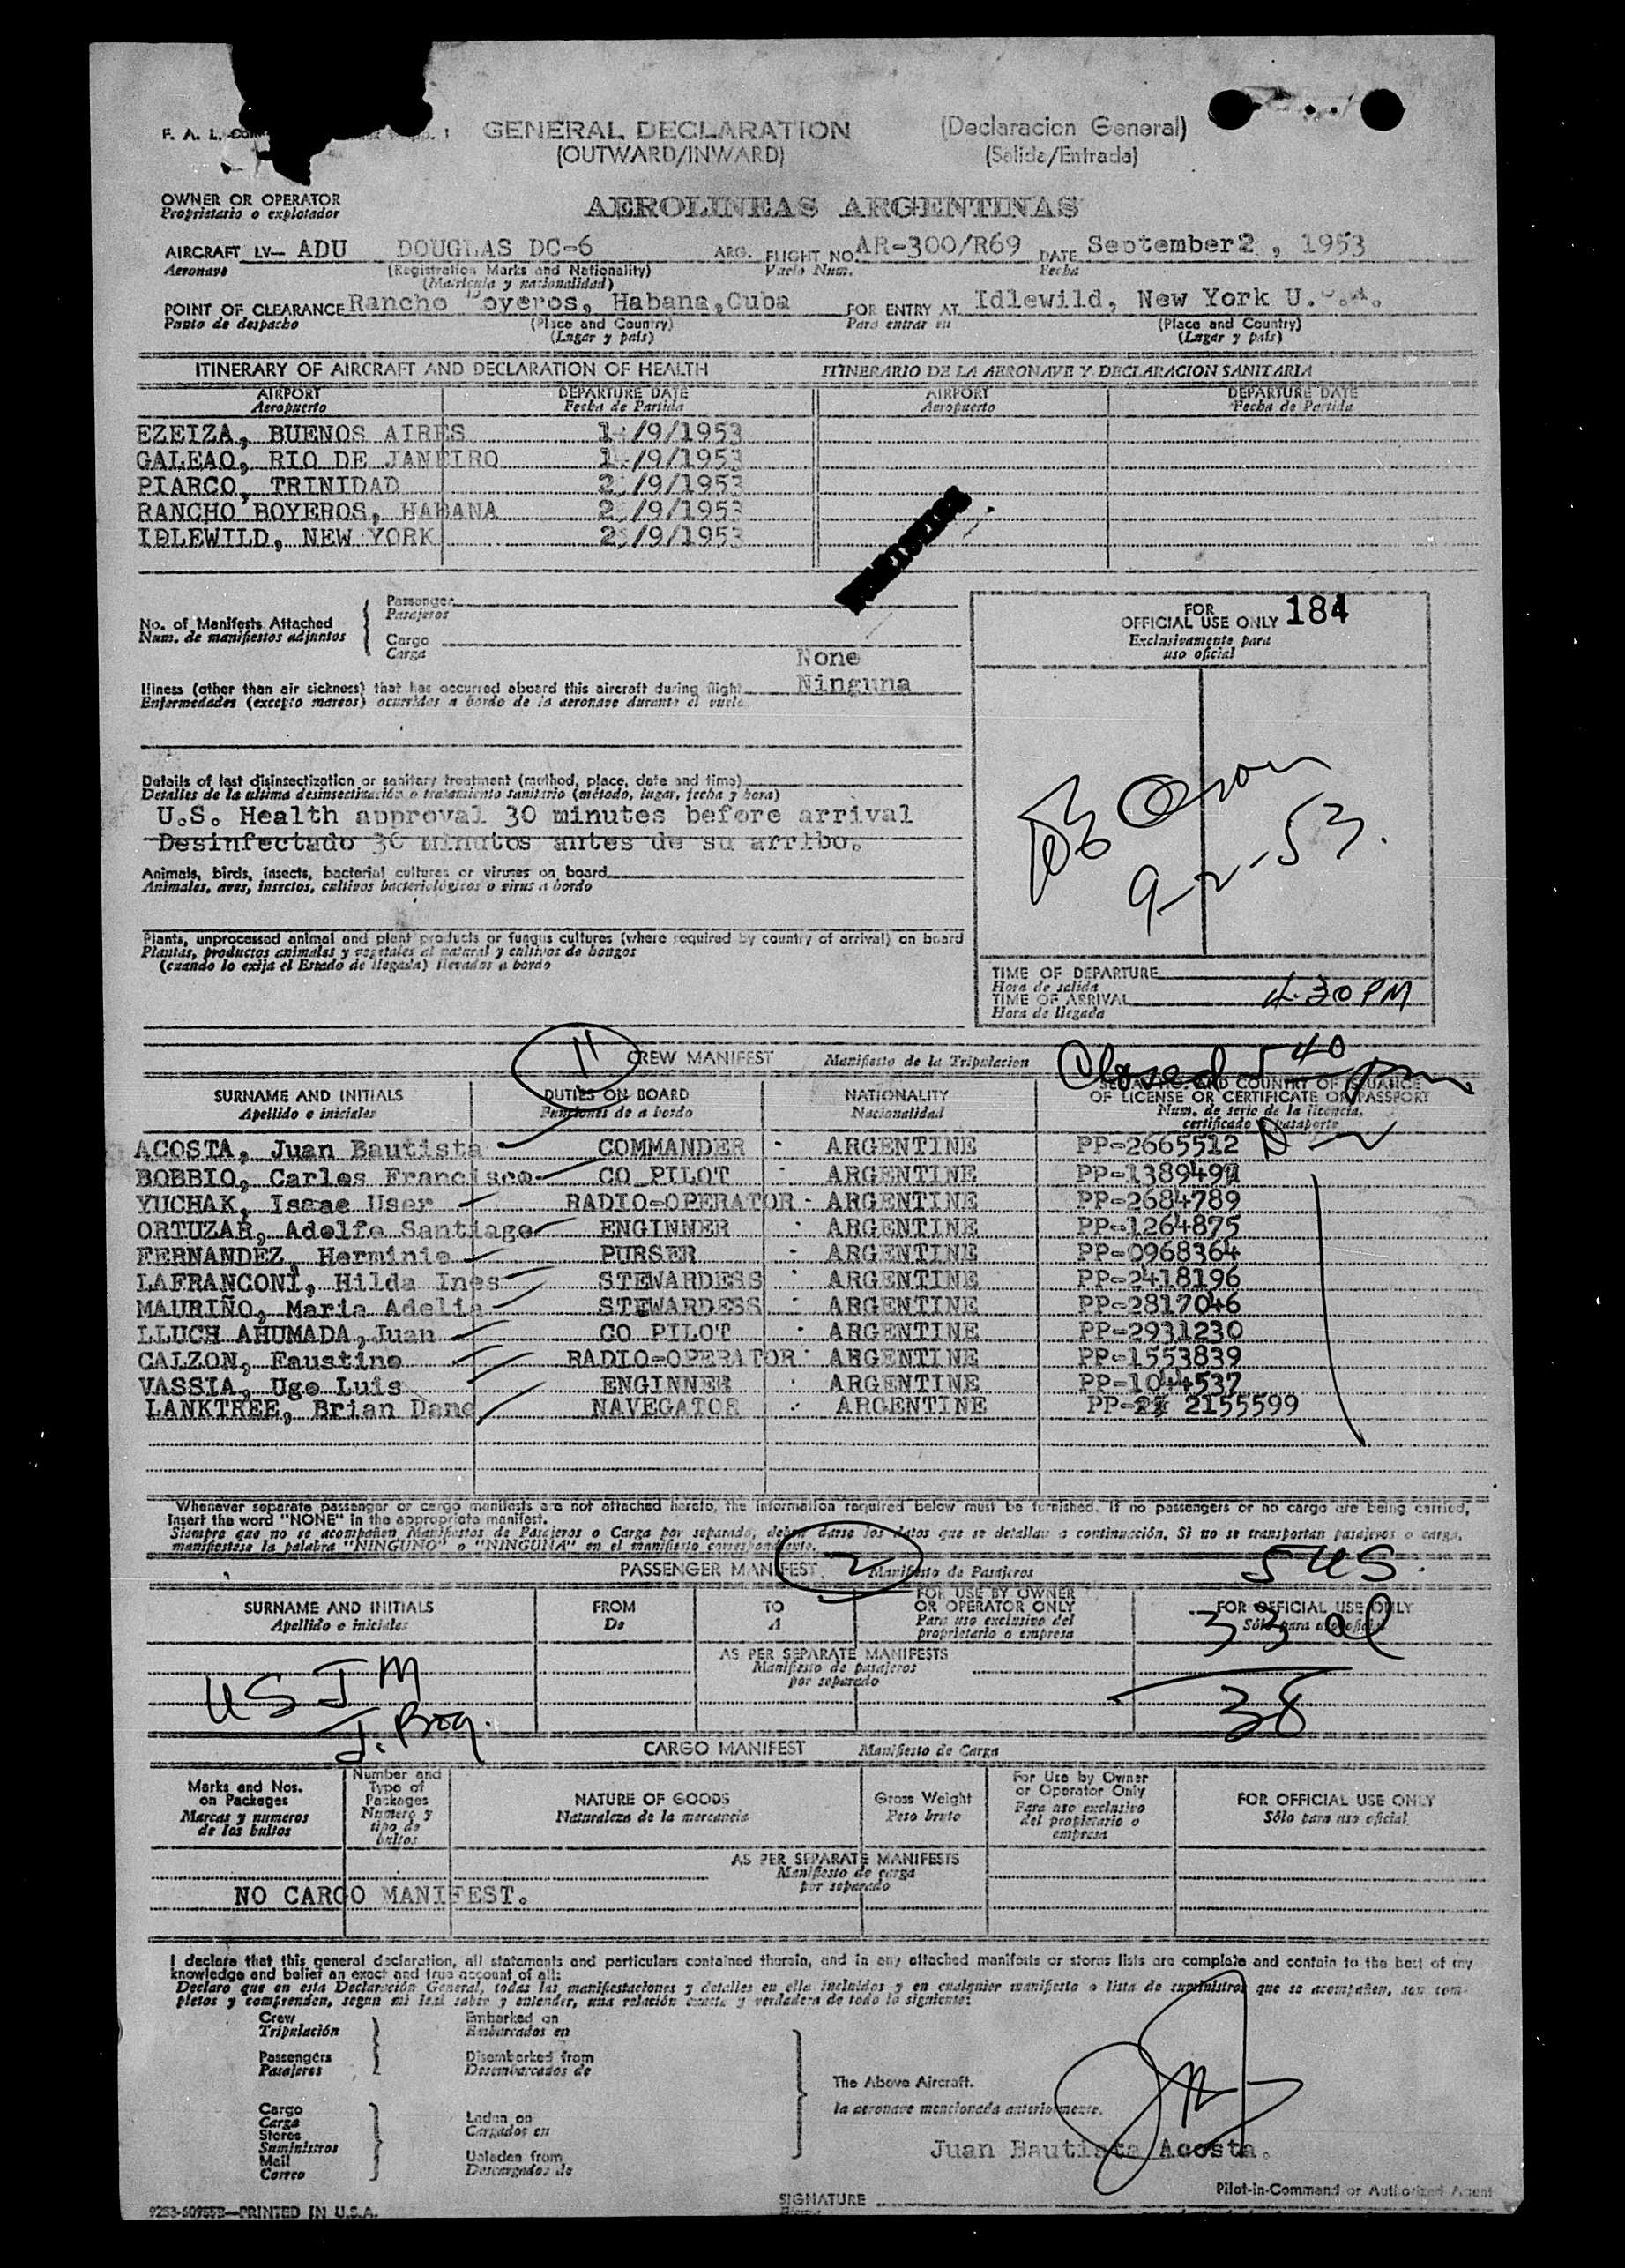 F. A. L.
GENERAL DECLARATION (Declaracion General)
(OUTWARD/INWARD) (Salida/Entrada)
OWNER OR OPERATOR
Propietario o explotador
AEROLINEAS ARGENTINAS
AIRCRAFT LV— ADU DOUGLAS DC-6 ARG. FLIGHT NO. AR-300/R69 DATE September 2 , 1953
Aeronave (Registration Marks and Nationality) Vuelo Num. Fecha
(Matricula y nacionalidad)
POINT OF CLEARANCE Rancho oyeros, Habana,Cuba FOR ENTRY AT Idlewild, New York U.S.A.
Punto de despacho (Place and Country) Para entrar en (Place and Country)
(Lugar y país) (Lugar y país)
ITINERARY OF AIRCRAFT AND DECLARATION OF HEALTH ITINERARIO DE LA AERONAVE Y DECLARACION SANITARIA
AIRPORT DEPARTURE DATE AIRPORT DEPARTURE DATE
Aeropuerto Fecha de Partida Aeropuerto Fecha de Partida
EZEIZA, BUENOS AIRES 1 /9/1953
GALEAO, RIO DE JANEIRO 1 /9/1953
PIARCO, TRINIDAD 2 /9/1953
RANCHO BOYEROS, HABANA 2 /9/1953
IDLEWILD, NEW YORK 2 /9/1953
No. of Manifests Attached
Num. de manifiestos adjuntos
Passenger
Pasajeros
Cargo
Carga
FOR
OFFICIAL USE ONLY 184
Exclusivamente para
uso oficial
None
Illness (other than air sickness) that has occurred aboard this aircraft during flight Ninguna
Enfermedades (excepto mareos) ocurridas a bordo de la aeronave durante el vuelo
Details of last disinsectization or sanitary treatment (method, place, date and time)
Detalles de la ultima desinsectización o tratamiento sanitario (método, lugar, fecha y hora)
U.S. Health approval 30 minutes before arrival
Desinfectado 30 minutos antes de su arribo.
9-2-53.
Animals, birds, insects, bacterial cultures or viruses on board
Animales, aves, insectos, cultivos bacteriológicos o virus a bordo
Plants, unprocessed animal and plant products or fungus cultures (where required by country of arrival) on board
Plantas, productos animales y vegetales al natural y cultivos de hongos
(cuando lo exija el Estado de llegada) llevados a bordo
TIME OF DEPARTURE
Hora de salida
TIME OF ARRIVAL 4.30 PM
Hora de llegada
11 CREW MANIFEST Manifiesto de la Tripulacion Closed 5 40 pm
SURNAME AND INITIALS DUTIES ON BOARD NATIONALITY SERIAL NO. AND COUNTRY OF ISSUANCE
OF LICENSE OR CERTIFICATE OR PASSPORT
Apellido e iniciales Funciones de a bordo Nacionalidad Num. de serie de la licencia,
certificado o pasaporte
ACOSTA, Juan Bautista COMMANDER - ARGENTINE PP-2665512
BOBBIO, Carlos Francisco CO PILOT ARGENTINE PP-1389491
YUCHAK, Isaac User RADIO-OPERATOR - ARGENTINE PP-2684789
ORTUZAR, Adolfo Santiago ENGINNER - ARGENTINE PP-1264875
FERNANDEZ, Herminio PURSER - ARGENTINE PP-0968364
LAFRANCONI, Hilda Ines STEWARDESS - ARGENTINE PP-2418196
MAURIÑO, Maria Adelia STEWARDESS - ARGENTINE PP-2817046
LLUCH AHUMADA, Juan CO PILOT - ARGENTINE PP-2931230
CALZON, Faustino RADIO-OPERATOR - ARGENTINE PP-1553839
VASSIA, Ugo Luis ENGINNER - ARGENTINE PP-1044537
LANKTREE, Brian Dand NAVEGATOR - ARGENTINE PP- 2155599
Whenever separate passenger or cargo manifests are not attached hereto, the information required below must be furnished. If no passengers or no cargo are being carried,
insert the word "NONE" in the appropriate manifest.
Siempre que no se acompañen Manifiestos de Pasajeros o Carga por separado, deben darse los datos que se detallan a continuación. Si no se transportan pasajeros o carga,
manifiestese la palabra "NINGUNO" o "NINGUNA" en el manifiesto correspondiente.
PASSENGER MANIFEST 2 Manifiesto de Pasajeros 5 US.
SURNAME AND INITIALS FROM TO FOR USE BY OWNER
OR OPERATOR ONLY FOR OFFICIAL USE ONLY
Apellido e iniciales De A Para uso exclusivo del
propietario o empresa Sólo para uso oficial
33 al
AS PER SEPARATE MANIFESTS
Manifiesto de pasajeros
por separado
US I M 38
CARGO MANIFEST Manifiesto de Carga
Marks and Nos.
on Packages
Marcas y numeros
de los bultos
Number and
Type of
Packages
Numero y
tipo de
bultos
NATURE OF GOODS
Naturaleza de la mercancía
Gross Weight
Peso bruto
For Use by Owner
or Operator Only
Para uso exclusivo
del propietario o
empresa
FOR OFFICIAL USE ONLY
Sólo para uso oficial
AS PER SEPARATE MANIFESTS
Manifiesto de carga
por separado
NO CARGO MANIFEST.
I declare that this general declaration, all statements and particulars contained therein, and in any attached manifests or stores lists are complete and contain to the best of my
knowledge and belief an exact and true account of all:
Declaro que en esta Declaración General, todas las manifestaciones y detalles en ella incluidos y en cualquier manifiesto o lista de suministros que se acompañen, son com-
pletos y comprenden, segun mi leal saber y entender, una relación exacta y verdadera de todo lo siguiente:
Crew
Tripulación
Passengers
Pasajeros
Embarked on
Embarcados en
Disembarked from
Desembarcados de
Cargo
Carga
Stores
Suministros
Mail
Correo
Laden on
Cargados en
Unladen from
Descargados de
The Above Aircraft.
la aeronave mencionada anteriormente.
Juan Bautista Acosta.
SIGNATURE Pilot-in-Command or Authorized Agent
PRINTED IN U.S.A.